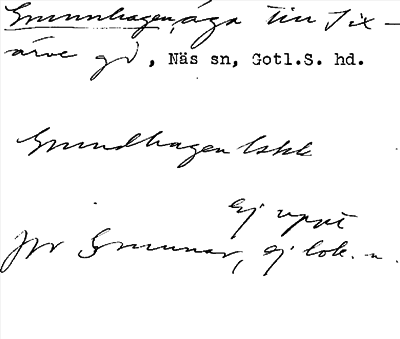 Grunnhagen, äga till Six-
arve gd, Näs sn, Gotl.S. hd.
Grundhagen lskk
ej uppt
Jfr Grunnar, ej lok.